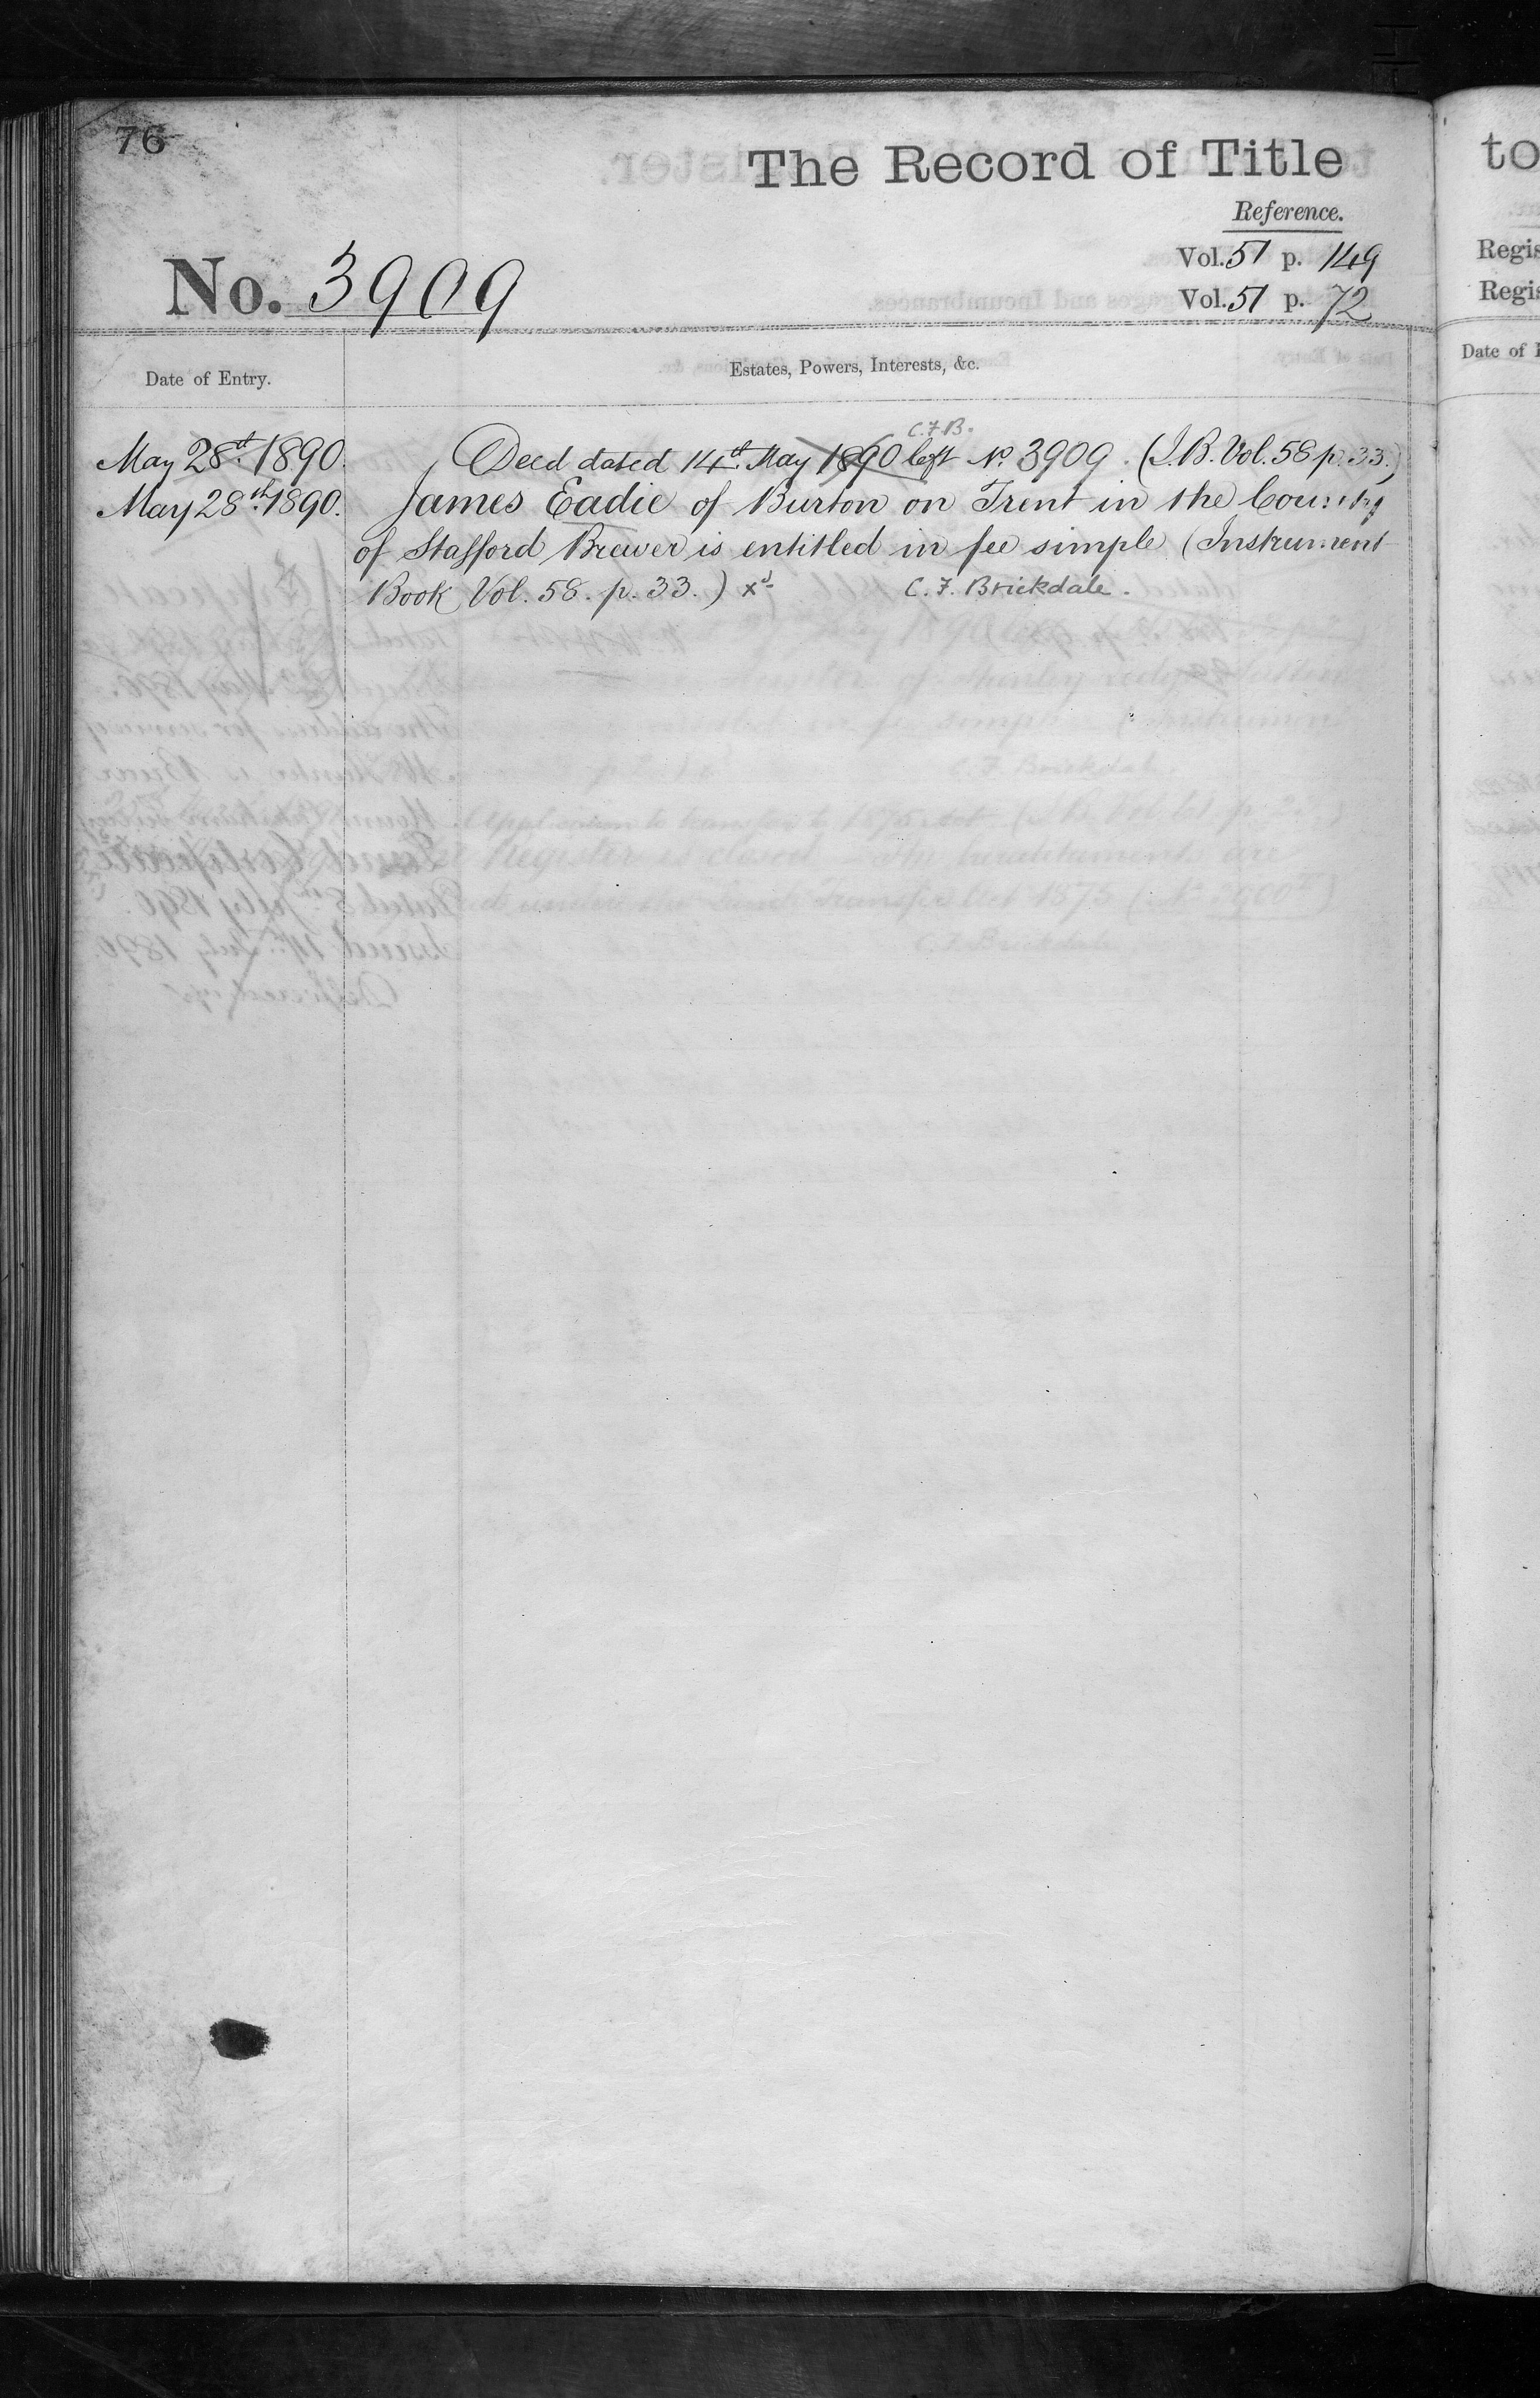 76
The Record of Title
Reference.
No. 3909
Vol. 51 p. 149
Vol. 51 p. 72
Date of Entry.
Estates, Powers, Interests, &c.
C.F.B.
May 28th 1890. Deed dated 14th May 1890 left No. 3909. (I.B. Vol. 58 p. 33.)
May 28th 1890. James Eadie of Burton on Trent in the County
of Stafford Brewer is entitled in fee simple (Instrument
Book Vol. 58. p. 33.) xd C. F. Brickdale.
to
Regis
Regis
Date of